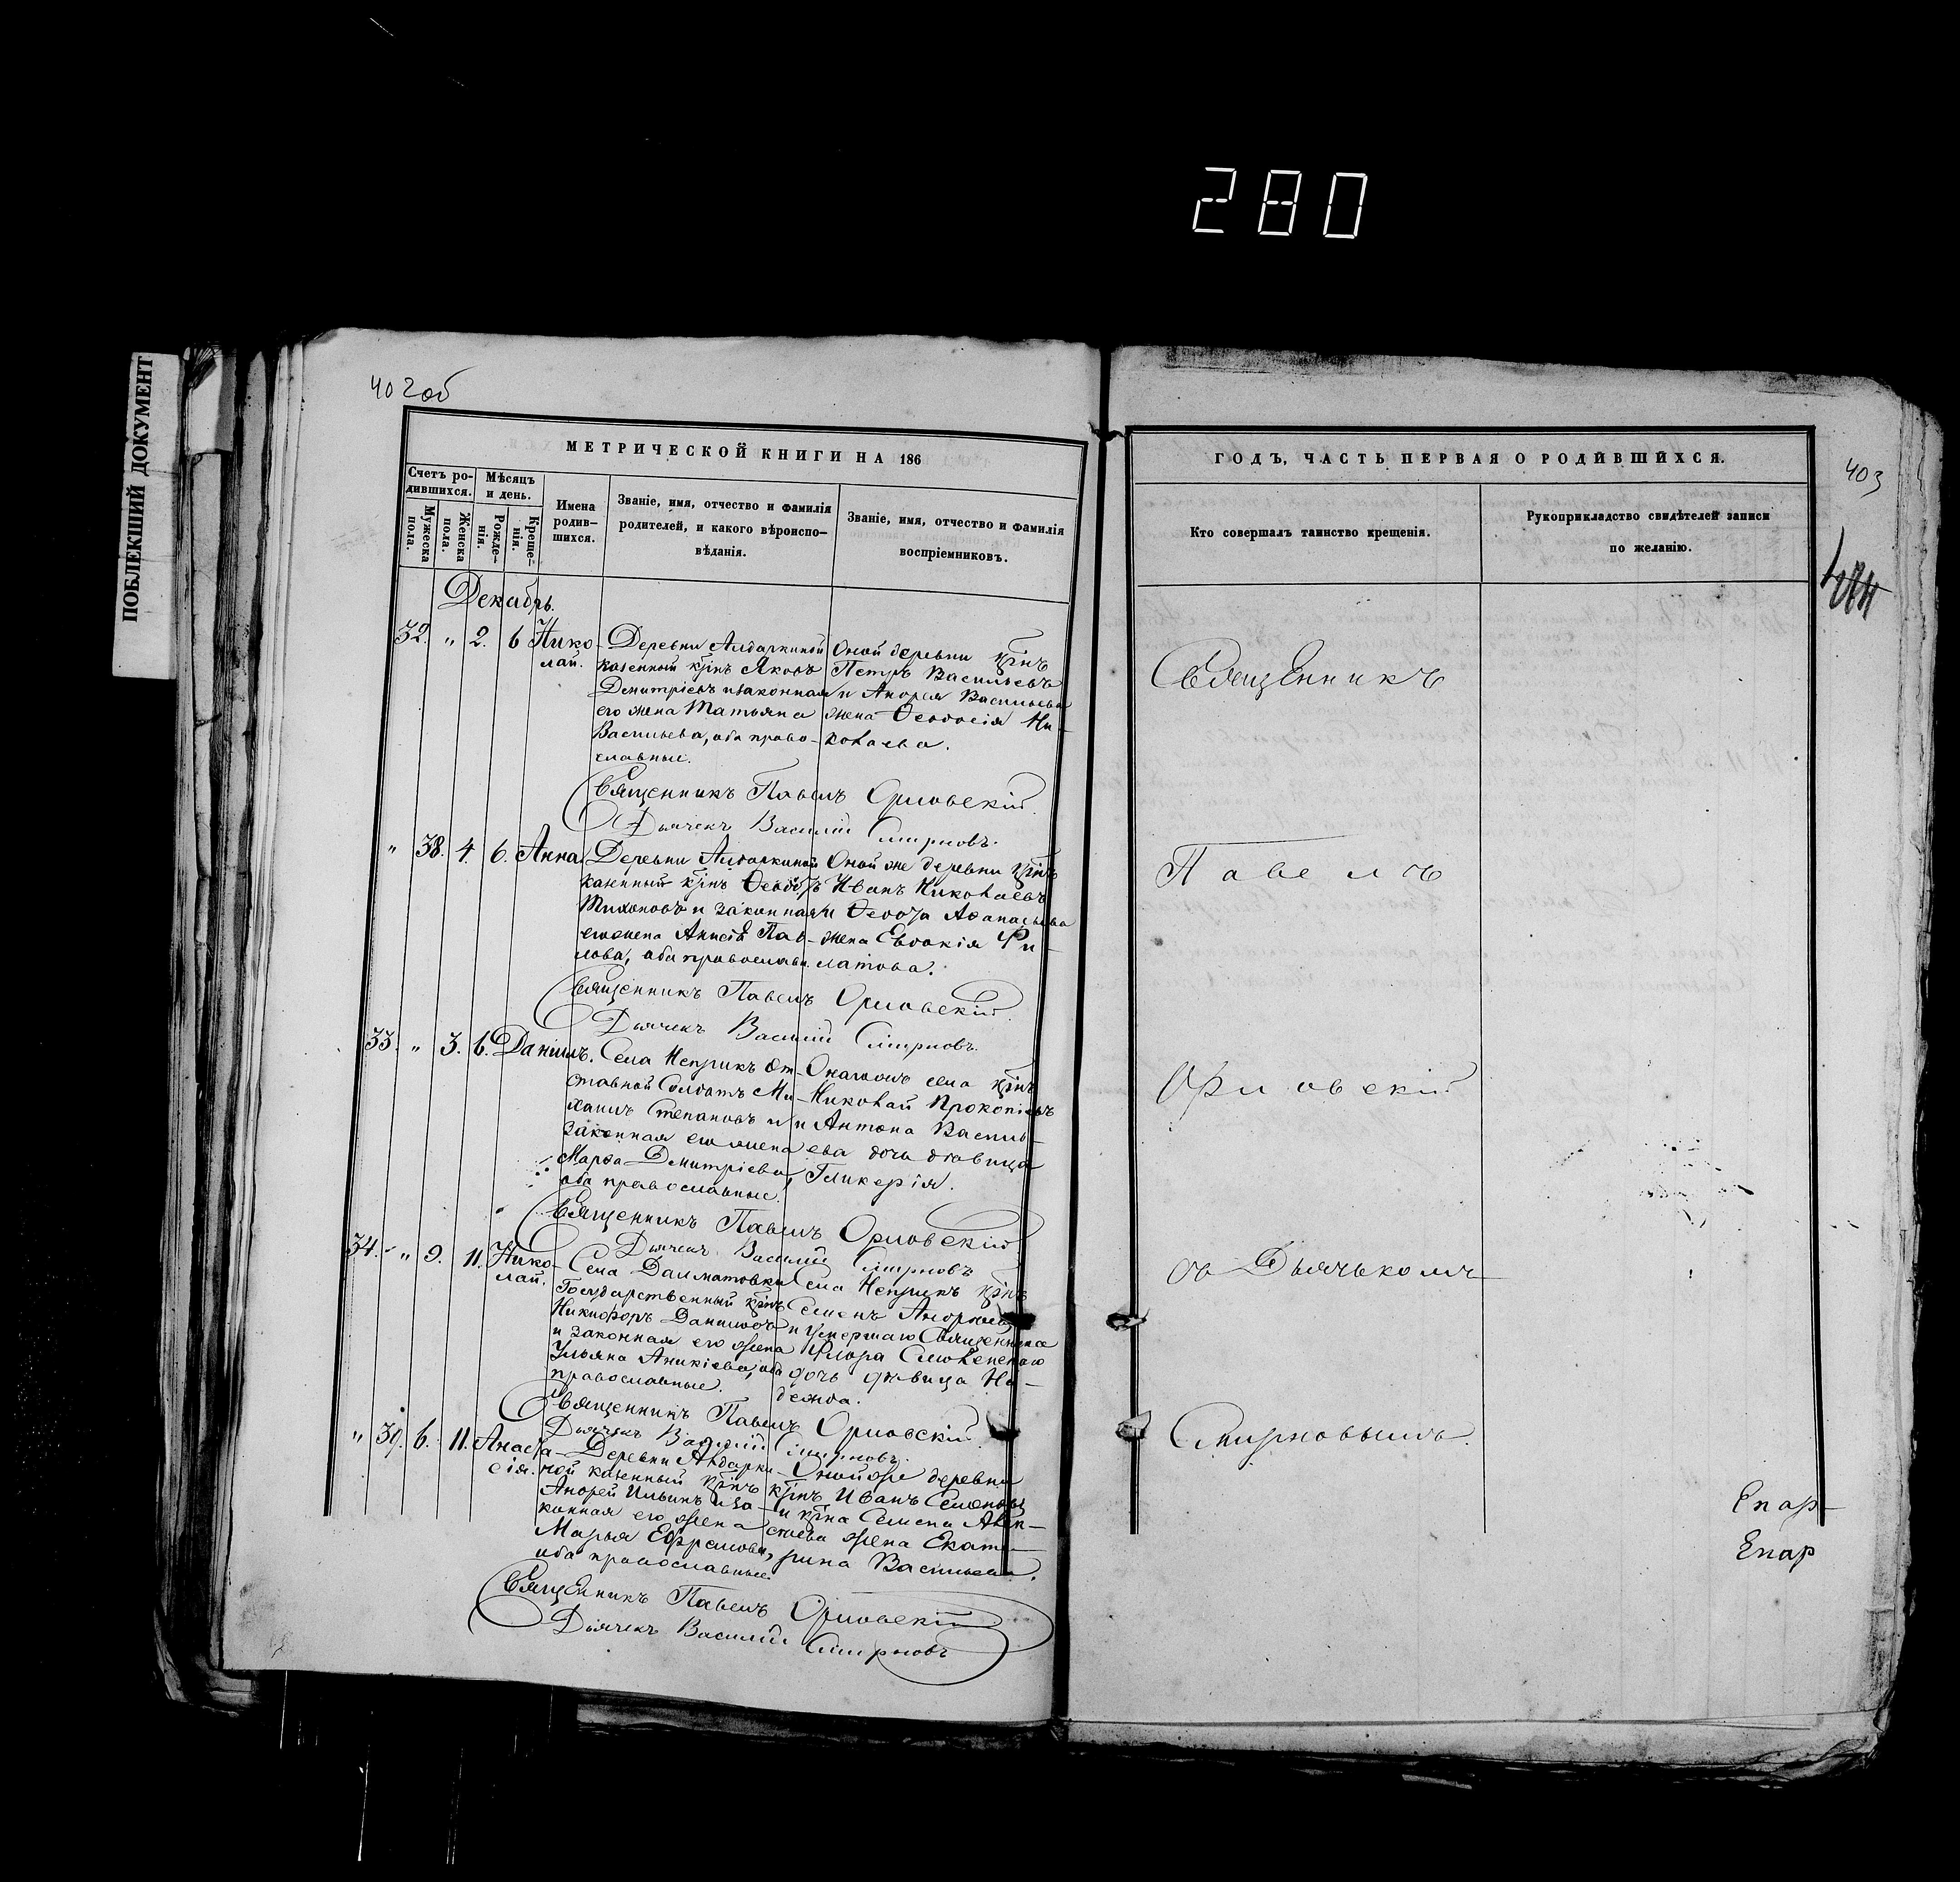 280
ПОБЛЕКШИЙ ДОКУМЕНТ
402об
МЕТРИЧЕСКОЙ КНИГИ НА 186
Счетъ ро-
дившихся.
Мужеска
пола.
Женска
пола.
Мѣсяцъ
и день.
Рожде-
нія.
Креще-
нія.
Имена
родив-
шихся.
Званіе, имя, отчество и фамилія
родителей, и какого вѣроиспо-
вѣданія.
Званіе, имя, отчество и фамилія
воспріемниковъ.
Декабрь.
32. " 2. 6 Нико-
лай.
Деревни Алдаркиной
казенный кр̃інъ Яковъ
Димитріевъ и законная
его жена Татьяна
Васильева, оба право-
славные.
Оной деревни кр̃інъ
Петръ Васильевъ
и Андрея Васильева
жена Ѳеодосія Ни-
колаева.
Священникъ Павелъ Орловскій
Дьячекъ Василій Смирновъ.
" 38. 4. 6. Анна.
Деревни Алдаркиной
казенный кр̃інъ Ѳеодоръ
Тихоновъ и законная
его жена Анисія Пав-
лова, оба православн.
Оной же деревни кр̃інъ
Иванъ Николаевъ
и Ѳедора Аѳанасьева
жена Евдокія Фи-
латова.
Священникъ Павелъ Орловскій.
Дьячекъ Василій Смирновъ.
33. " 3. 6. Даніилъ.
Села Неприкъ от-
ставной солдатъ Ми-
хаилъ Степановъ и
законная его жена
Марѳа Димитріева,
оба православные.
Онагожъ села кр̃інъ
Николай Прокопіевъ
и Антона Василь-
ева дочь дѣвица
Гликерія.
Священникъ Павелъ Орловскій
Дьячекъ Василій Смирновъ
34. " 9. 11. Нико-
лай.
Села Далматовки
Государственный кр̃інъ
Никифоръ Даниловъ
и законная его жена
Ульяна Аникіева, оба
православные.
Села Неприкъ кр̃інъ
Семенъ Андреевъ
и умершаго Священника
Флора Словенскаго
дочь дѣвица На-
дежда.
Священникъ Павелъ Орловскій.
Дьячекъ Василій Смирновъ.
" 39. 6. 11. Анаста-
сія.
Деревни Алдарки-
ной казенный кр̃інъ
Андрей Ильинъ и за-
конная его жена
Марья Ефремова,
оба православные.
Оной же деревни
кр̃інъ Иванъ Семеновъ
и кр̃іна Семена
жена Екате-
рина Васильева.
Священникъ Павелъ Орловскій
Дьячекъ Василій Смирновъ
ГОДЪ, ЧАСТЬ ПЕРВАЯ О РОДИВШИХСЯ.
403
Кто совершалъ таинство крещенія.
Рукоприкладство свидѣтелей записи
по желанію.
Священникъ
Павелъ
Орловскій
съ Дьячькомъ
Смирновымъ.
Епар-
Епар